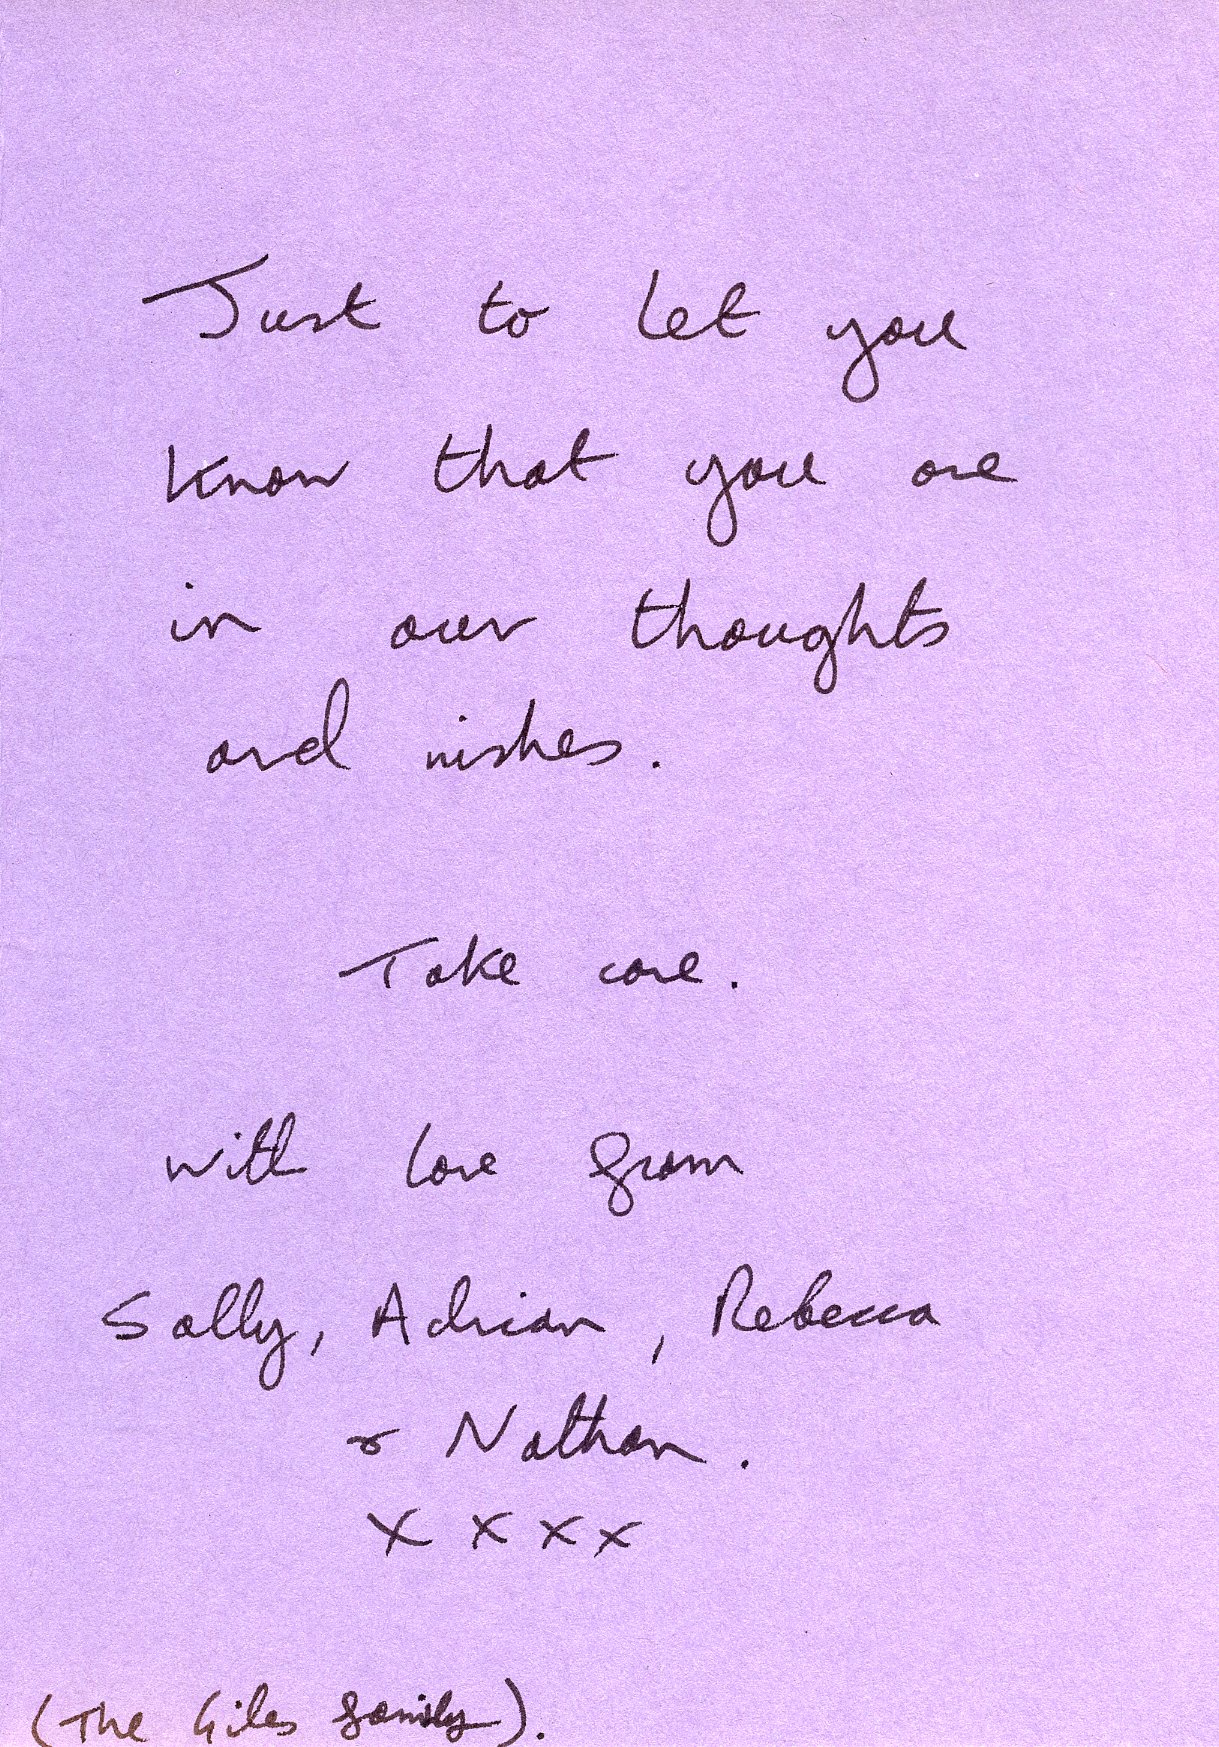 Just to let you
know that you are
in our thoughts
and wishes.
Take care.
with love from
Sally, Adrian, Rebecca
& Nathan.
x x x x
(The Giles family).